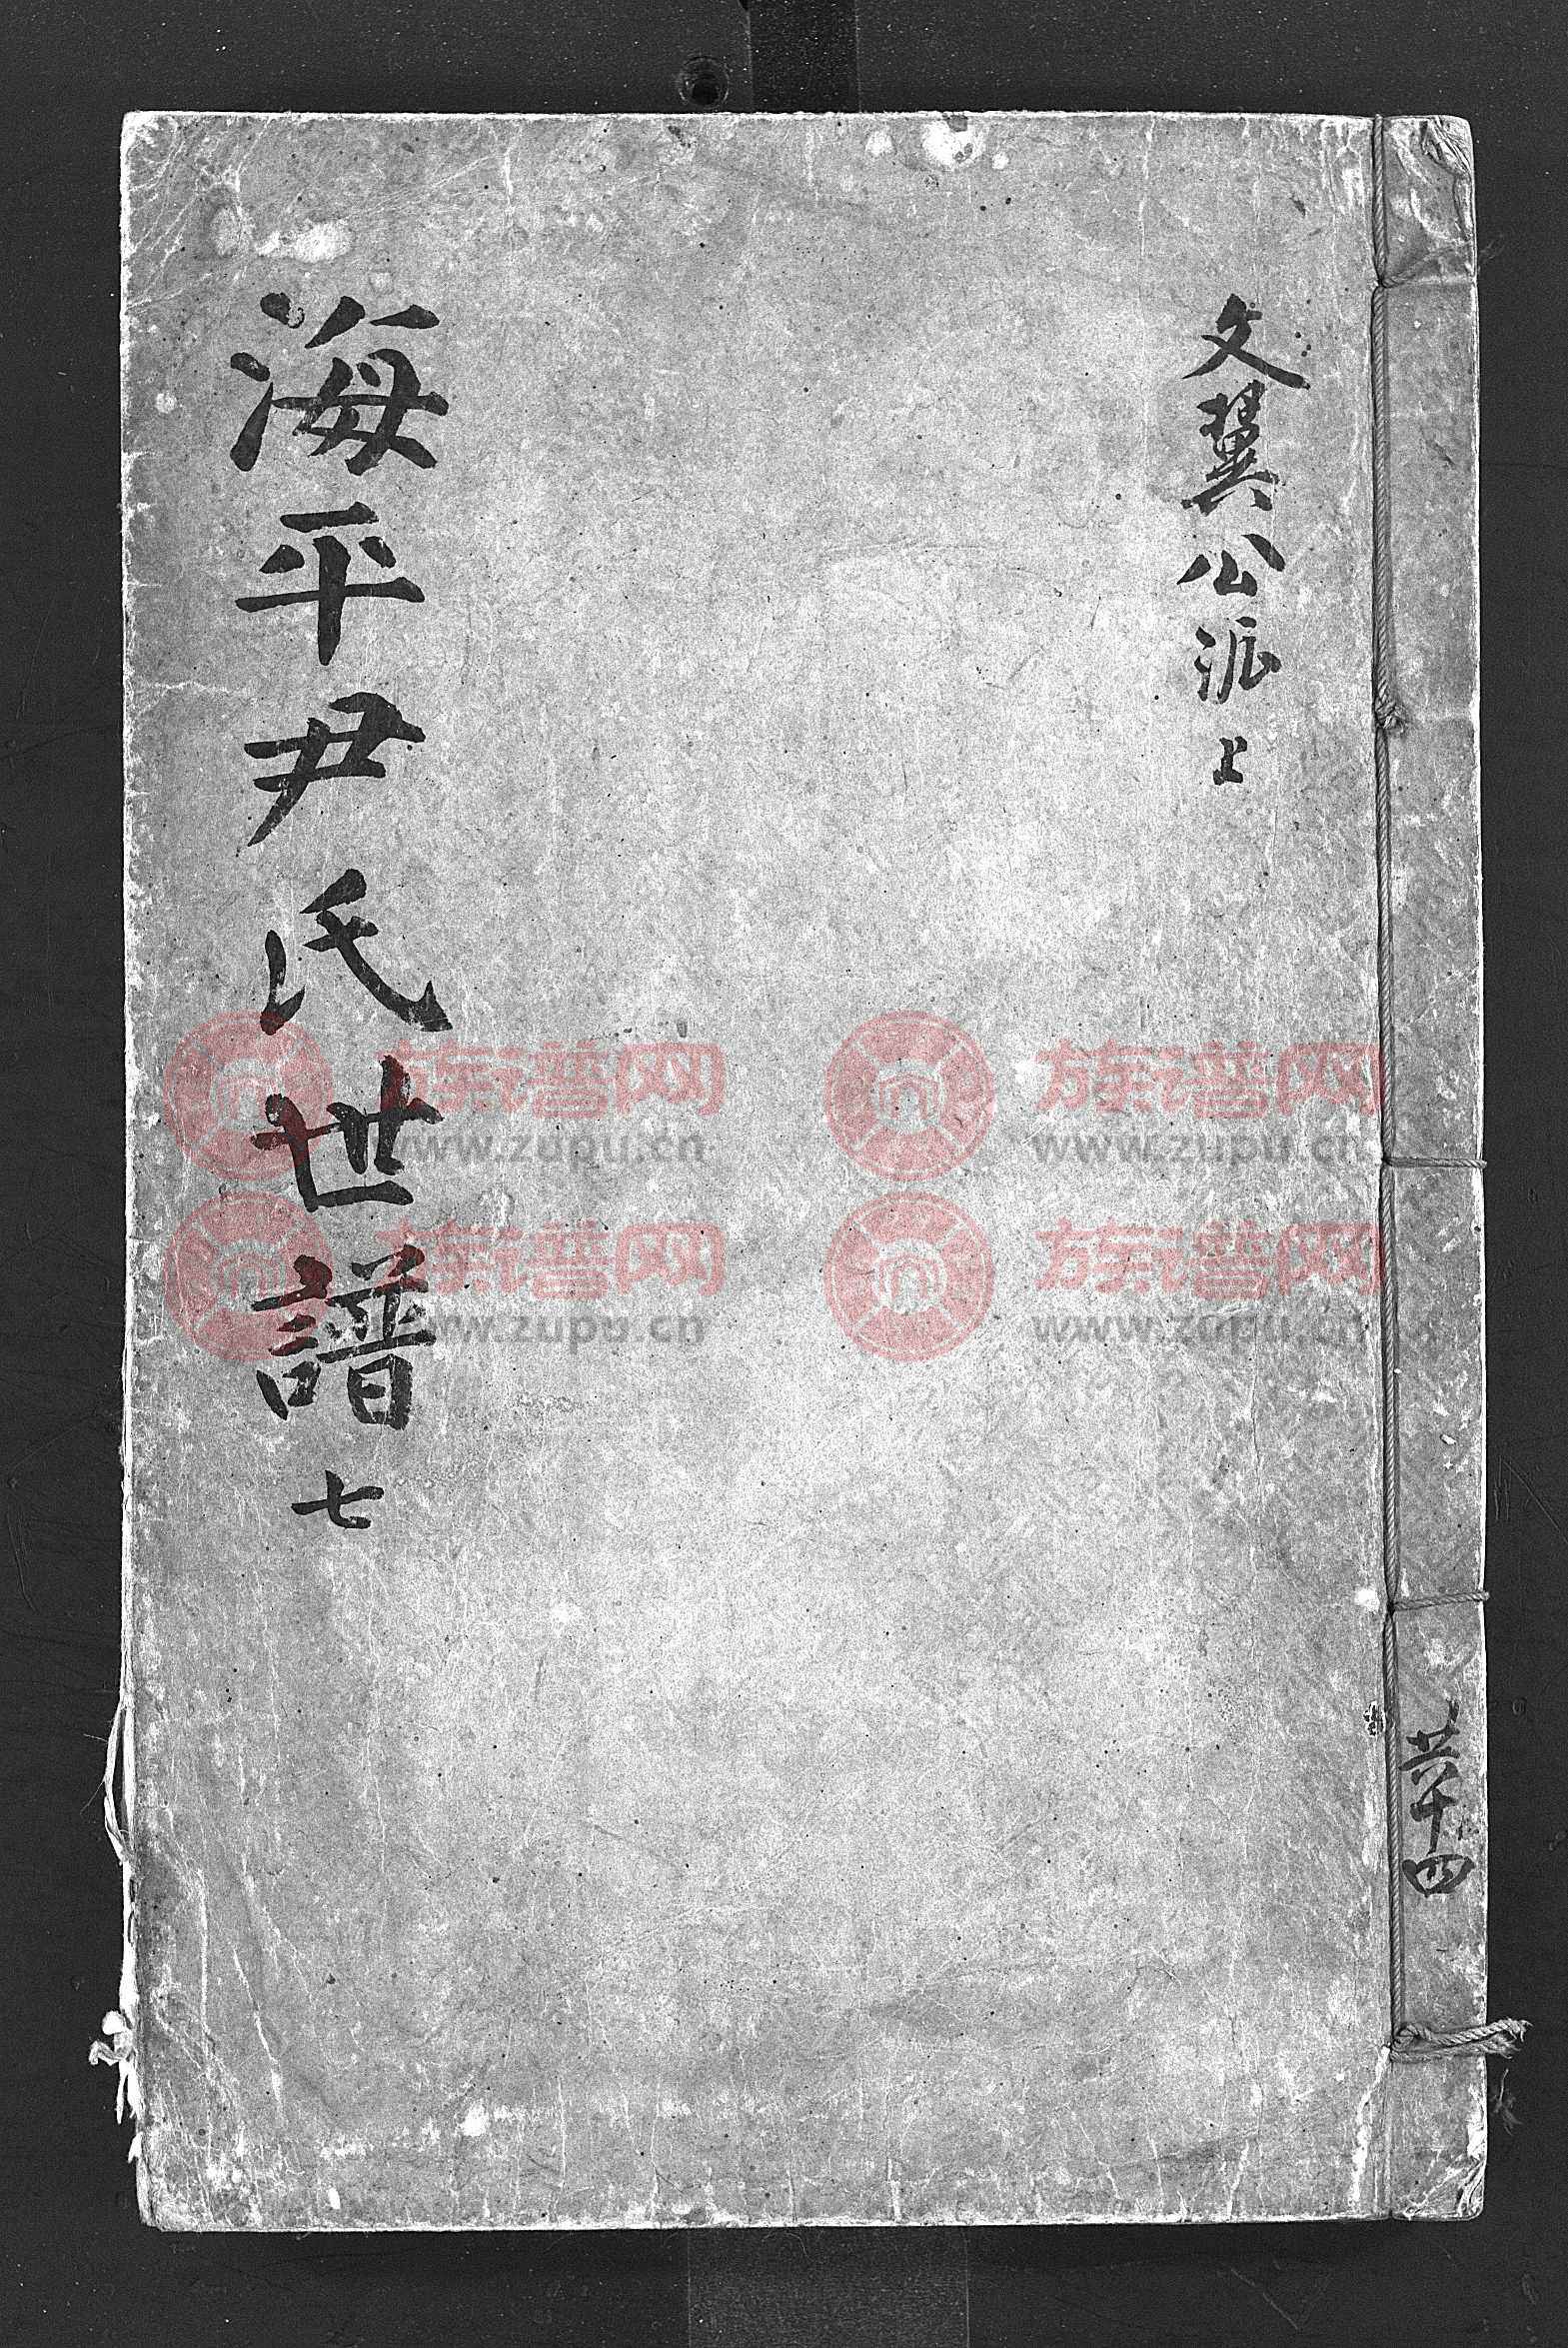 文翼公派上
海平尹氏世譜 七
共十四
族谱网
www.zupu.cn
族谱网
www.zupu.cn
族谱网
www.zupu.cn
族谱网
www.zupu.cn